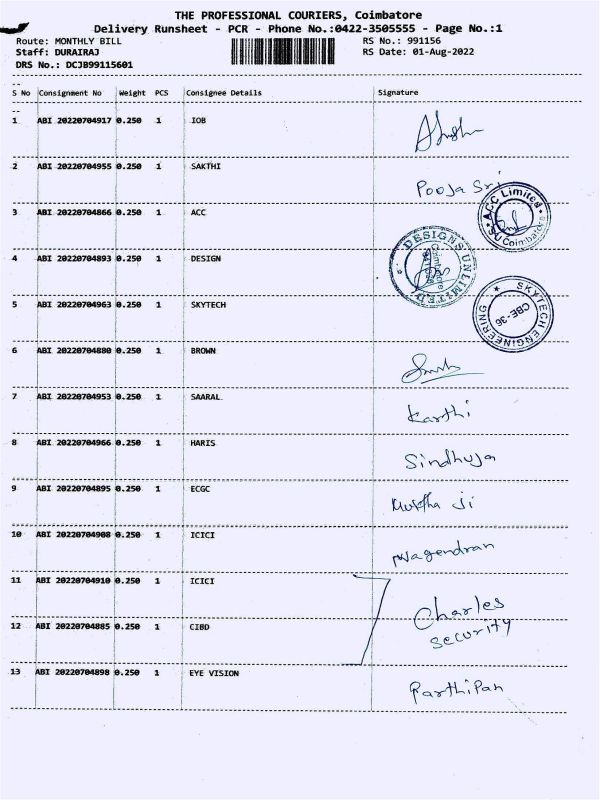 THE PROFESSIONAL COURIERS, Coimbatore
Delivery Runsheet - PCR - Phone No.:0422-3505555 - Page No.:1
Route: MONTHLY BILL RS No.: 991156
Staff: DURAIRAJ RS Date: 01-Aug-2022
DRS No.: DCJB99115601
S No Consignment No Weight PCS Consignee Details Signature
1 ABI 20220704917 0.250 1 IOB
2 ABI 20220704955 0.250 1 SAKTHI Pooja Sri
3 ABI 20220704866 0.250 1 ACC ACC Limited Coimbatore
4 ABI 20220704893 0.250 1 DESIGN DESIGNS UNLIMITED Coimbatore
5 ABI 20220704963 0.250 1 SKYTECH SKYTECH ENGINEERING CBE-36
6 ABI 20220704880 0.250 1 BROWN
7 ABI 20220704953 0.250 1 SAARAL Karthi
8 ABI 20220704966 0.250 1 HARIS Sindhuja
9 ABI 20220704895 0.250 1 ECGC Muktha Ji
10 ABI 20220704908 0.250 1 ICICI Nagendran
11 ABI 20220704910 0.250 1 ICICI Charles
12 ABI 20220704885 0.250 1 CIBD security
13 ABI 20220704898 0.250 1 EYE VISION Parthipan